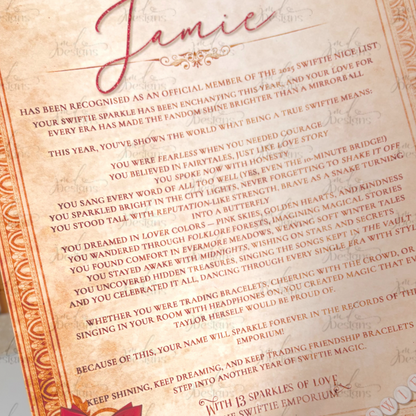 Jamie
HAS BEEN RECOGNISED AS AN OFFICIAL MEMBER OF THE 2025 SWIFTIE NICE LIST
YOUR SWIFTIE SPARKLE HAS BEEN ENCHANTING THIS YEAR, AND YOUR LOVE FOR
EVERY ERA HAS MADE THE FANDOM SHINE BRIGHTER THAN A MIRRORBALL
THIS YEAR, YOU'VE SHOWN THE WORLD WHAT BEING A TRUE SWIFTIE MEANS:
YOU WERE FEARLESS WHEN YOU NEEDED COURAGE
YOU BELIEVED IN FAIRYTALES, JUST LIKE LOVE STORY
YOU SPOKE NOW WITH HONESTY
YOU SANG EVERY WORD OF ALL TOO WELL (YES, EVEN THE 10-MINUTE BRIDGE!)
YOU SPARKLED BRIGHT IN THE CITY LIGHTS, NEVER FORGETTING TO SHAKE IT OFF
YOU STOOD TALL WITH REPUTATION-LIKE STRENGTH, BRAVE AS A SNAKE TURNING
INTO A BUTTERFLY
YOU DREAMED IN LOVER COLORS — PINK SKIES, GOLDEN HEARTS, AND KINDNESS
YOU WANDERED THROUGH FOLKLORE FORESTS, IMAGINING MAGICAL STORIES
YOU FOUND COMFORT IN EVERMORE MEADOWS, WEAVING SOFT WINTER TALES
YOU STAYED AWAKE WITH MIDNIGHTS, WISHING ON STARS AND SECRETS
YOU UNCOVERED HIDDEN TREASURES, SINGING THE SONGS KEPT IN THE VAULT
AND YOU CELEBRATED IT ALL, DANCING THROUGH EVERY SINGLE ERA WITH STYL
WHETHER YOU WERE TRADING BRACELETS, CHEERING WITH THE CROWD, OR
SINGING IN YOUR ROOM WITH HEADPHONES ON, YOU CREATED MAGIC THAT EV
TAYLOR HERSELF WOULD BE PROUD OF.
BECAUSE OF THIS, YOUR NAME WILL SPARKLE FOREVER IN THE RECORDS OF THE
EMPORIUM!
KEEP SHINING, KEEP DREAMING, AND KEEP TRADING FRIENDSHIP BRACELETS
STEP INTO ANOTHER YEAR OF SWIFTIE MAGIC.
WITH 13 SPARKLES OF LOVE
THE SWIFTIE EMPORIUM